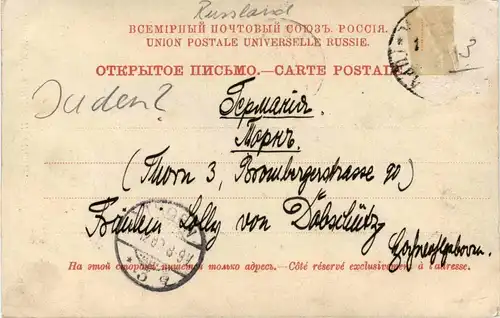 Russland
ВСЕМІРНЫЙ ПОЧТОВЫЙ СОЮЗЪ. РОССІЯ.
UNION POSTALE UNIVERSELLE RUSSIE.
13
ОТКРЫТОЕ ПИСЬМО.—CARTE POSTALE
Juden?
Германія
Торнъ.
(Thorn 3, Brombergerstrasse 90)
Fräulein Lolly von Dobschütz
Hochwohlgeboren.
На этой сторонѣ пишется только адресъ.— Côté réservé exclusivement à l'adresse.